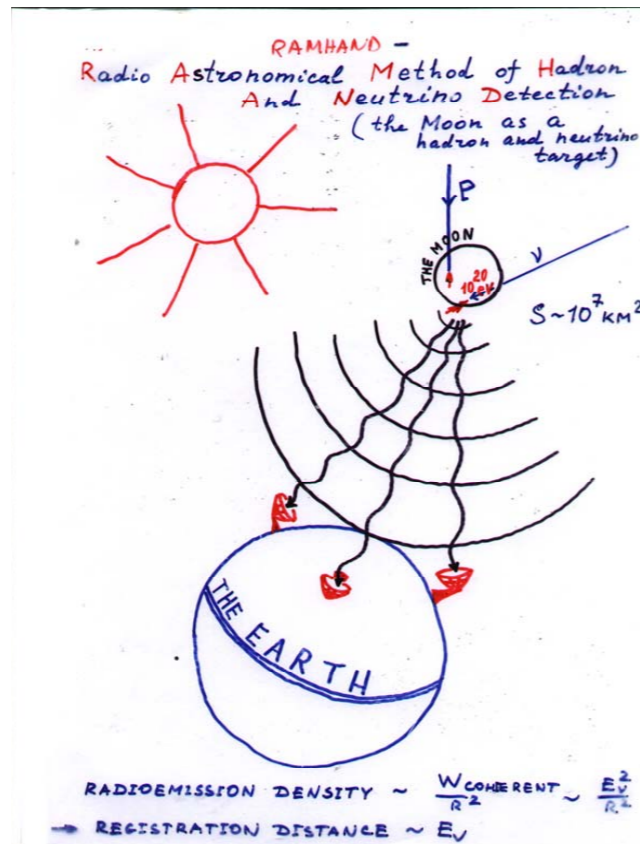 RAMHAND –
Radio Astronomical Method of Hadron
And Neutrino Detection
(the Moon as a
hadron and neutrino
target)
P
THE MOON
ν
10²⁰ eV
S ~ 10⁷ KM²
THE EARTH
RADIOEMISSION DENSITY ~ W COHERENT / R² ~ E_ν² / R²
→ REGISTRATION DISTANCE ~ E_ν